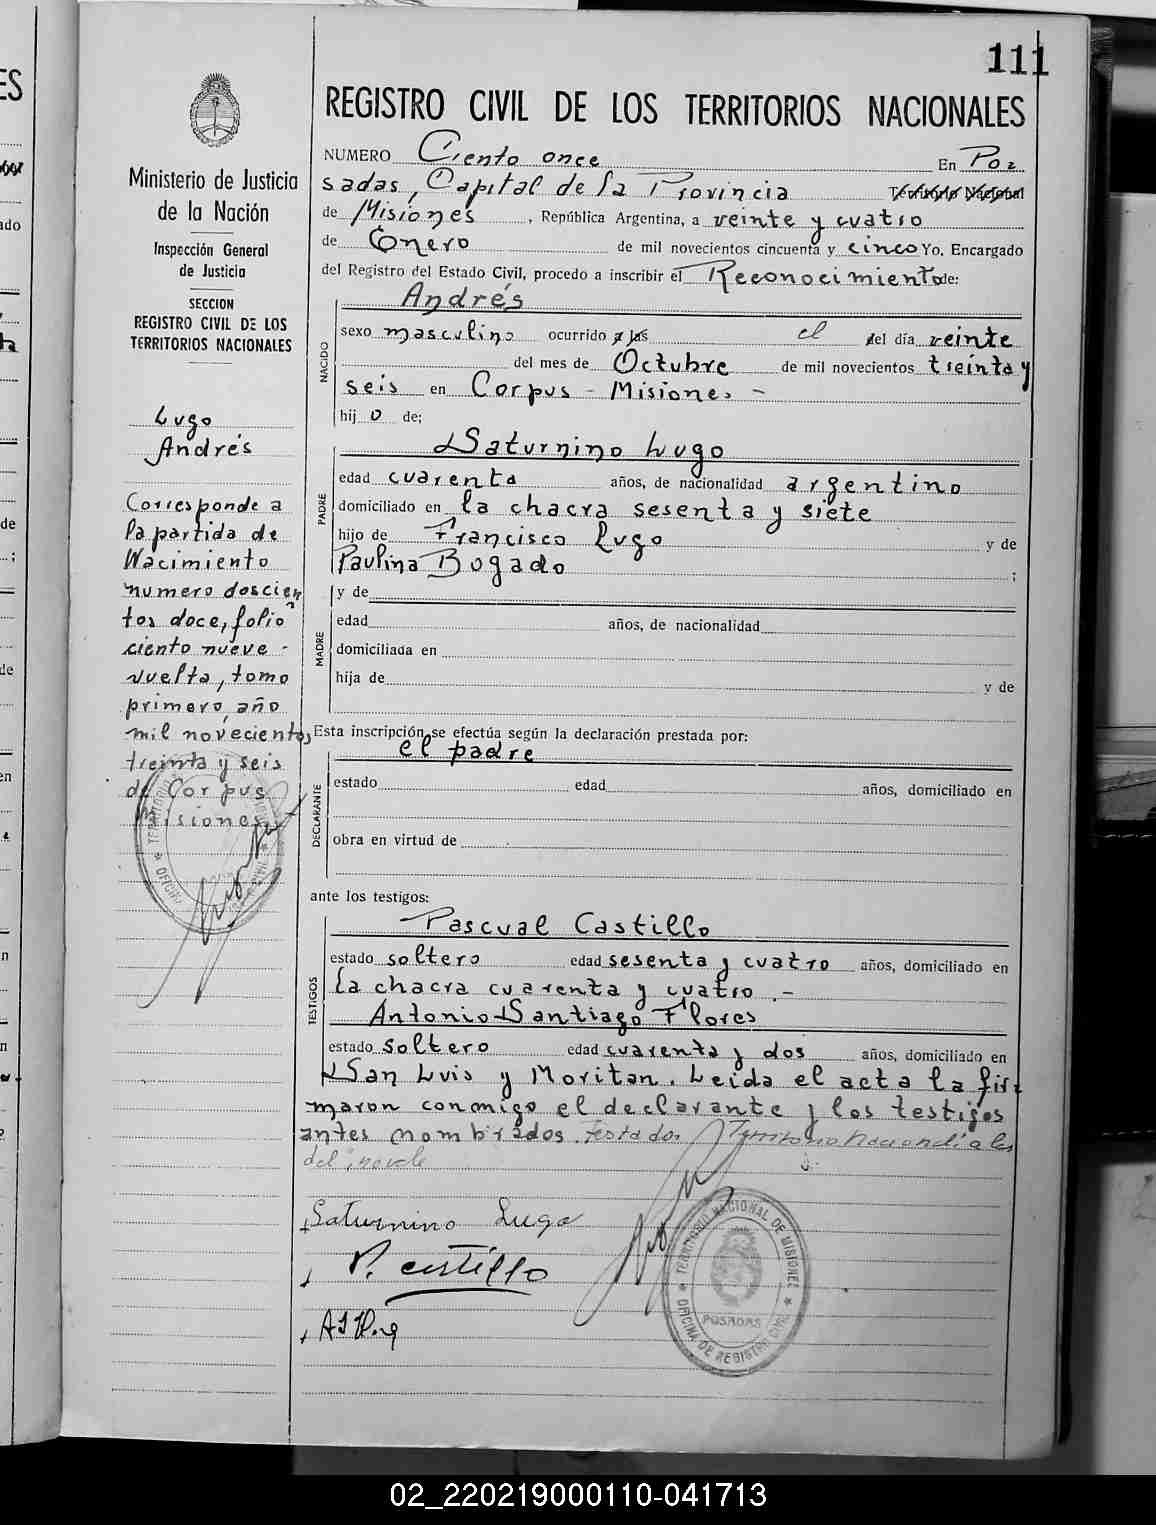 111
REGISTRO CIVIL DE LOS TERRITORIOS NACIONALES
Ministerio de Justicia
de la Nación
Inspección General
de Justicia
SECCION
REGISTRO CIVIL DE LOS
TERRITORIOS NACIONALES
Lugo
Andrés
Corresponde a
la partida de
Nacimiento
numero doscien
tos doce, folio
ciento nueve -
vuelta, tomo
primero, año
mil novecientos
treinta y seis
de Corpus
Misiones
NUMERO Ciento once En Po
sadas, Capital de la Provincia Territorio Nacional
de Misiones , República Argentina, a veinte y cuatro
de Enero de mil novecientos cincuenta y cinco Yo, Encargado
del Registro del Estado Civil, procedo a inscribir el Reconocimiento de:
Andrés
NACIDO
sexo masculino ocurrido a las el del día veinte
del mes de Octubre de mil novecientos treinta y
seis en Corpus - Misiones -
hij o de;
Saturnino Lugo
PADRE
edad cuarenta años, de nacionalidad argentino
domiciliado en la chacra sesenta y siete
hijo de Francisco Lugo y de
Paulina Bogado ;
y de
MADRE
edad años, de nacionalidad
domiciliada en
hija de y de
Esta inscripción se efectúa según la declaración prestada por:
el padre
DECLARANTE
estado edad años, domiciliado en
obra en virtud de
ante los testigos:
Pascual Castillo
TESTIGOS
estado soltero edad sesenta y cuatro años, domiciliado en
la chacra cuarenta y cuatro . -
Antonio Santiago Flores
estado soltero edad cuarenta y dos años, domiciliado en
San Luis y Moritan. Leida el acta la fir
maron conmigo el declarante y los testigos
antes nombrados. Testados Territorio Nacional a las
del no vale
Saturnino Lugo
P. castillo
TERRITORIO NACIONAL DE MISIONES
POSADAS
OFICINA DE REGISTRO CIVIL
02_220219000110-041713